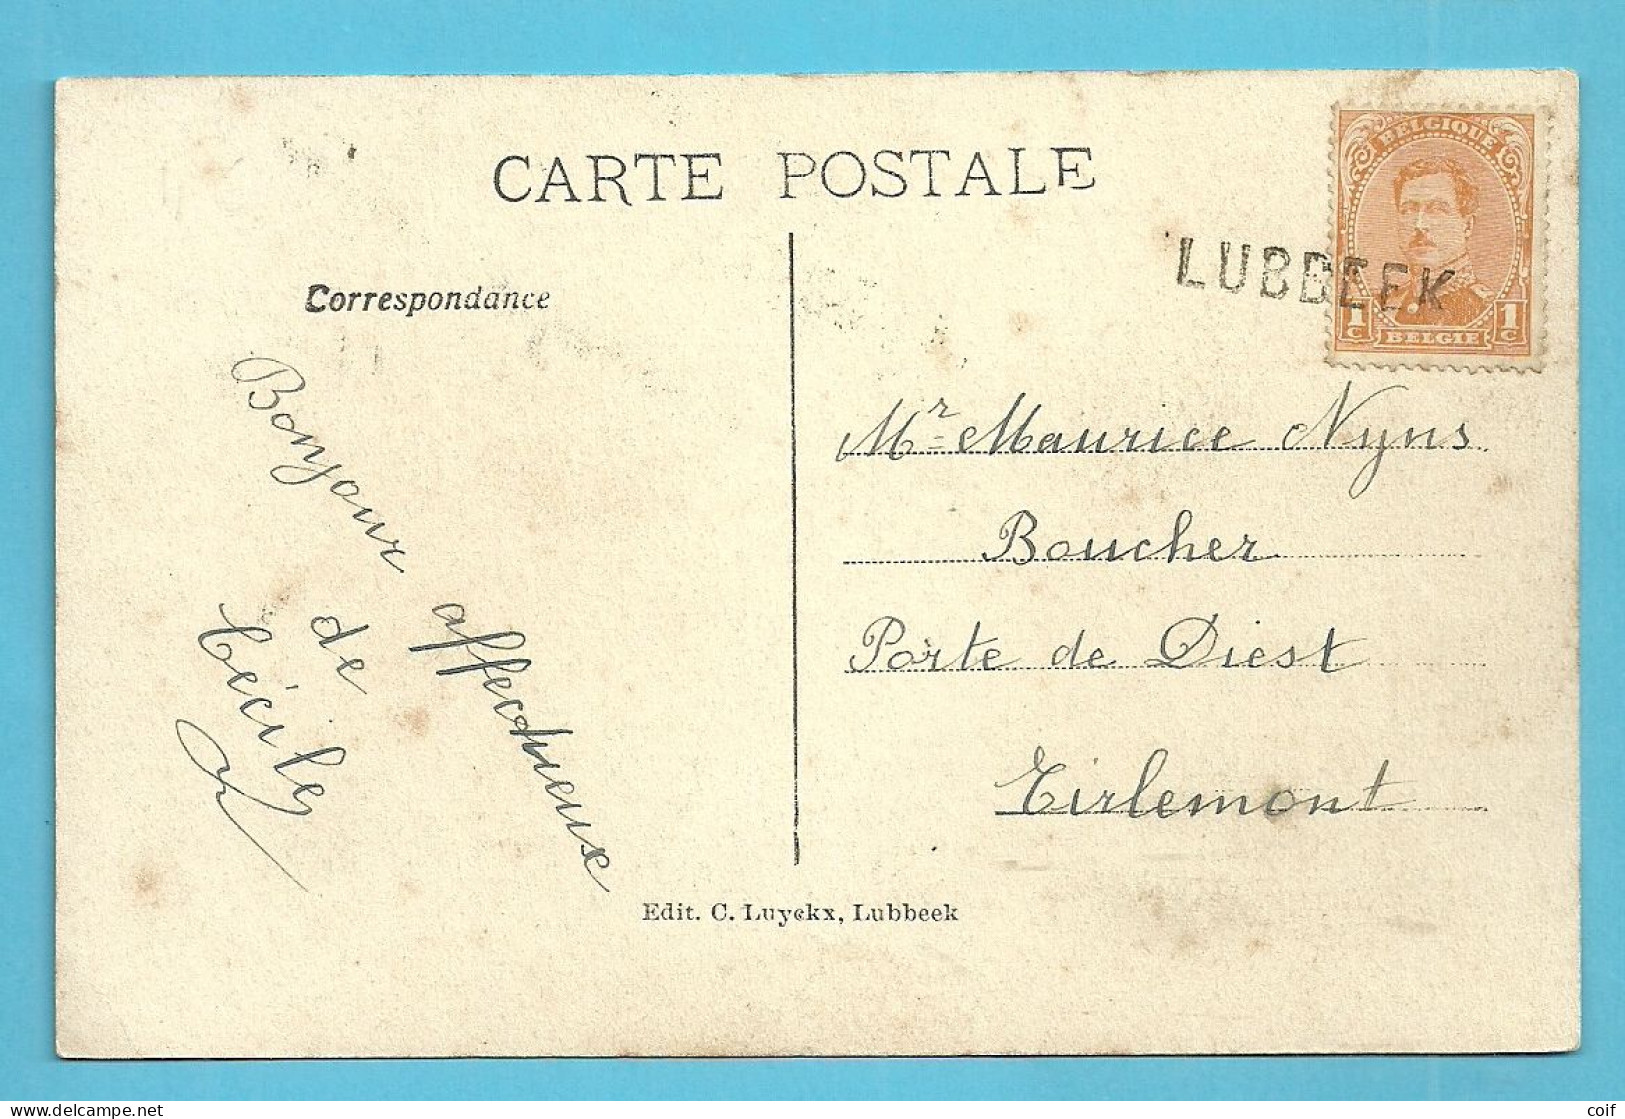 CARTE POSTALE
BELGIQUE
LUBBEEK
1c 1c
BELGIE
Correspondance
Bonjour
affectueux
de
Cécile
Mr = Maurice Nyns
Boucher
Porte de Diest
Tirlemont
Edit. C. Luyckx, Lubbeek
delcampe.net
coif